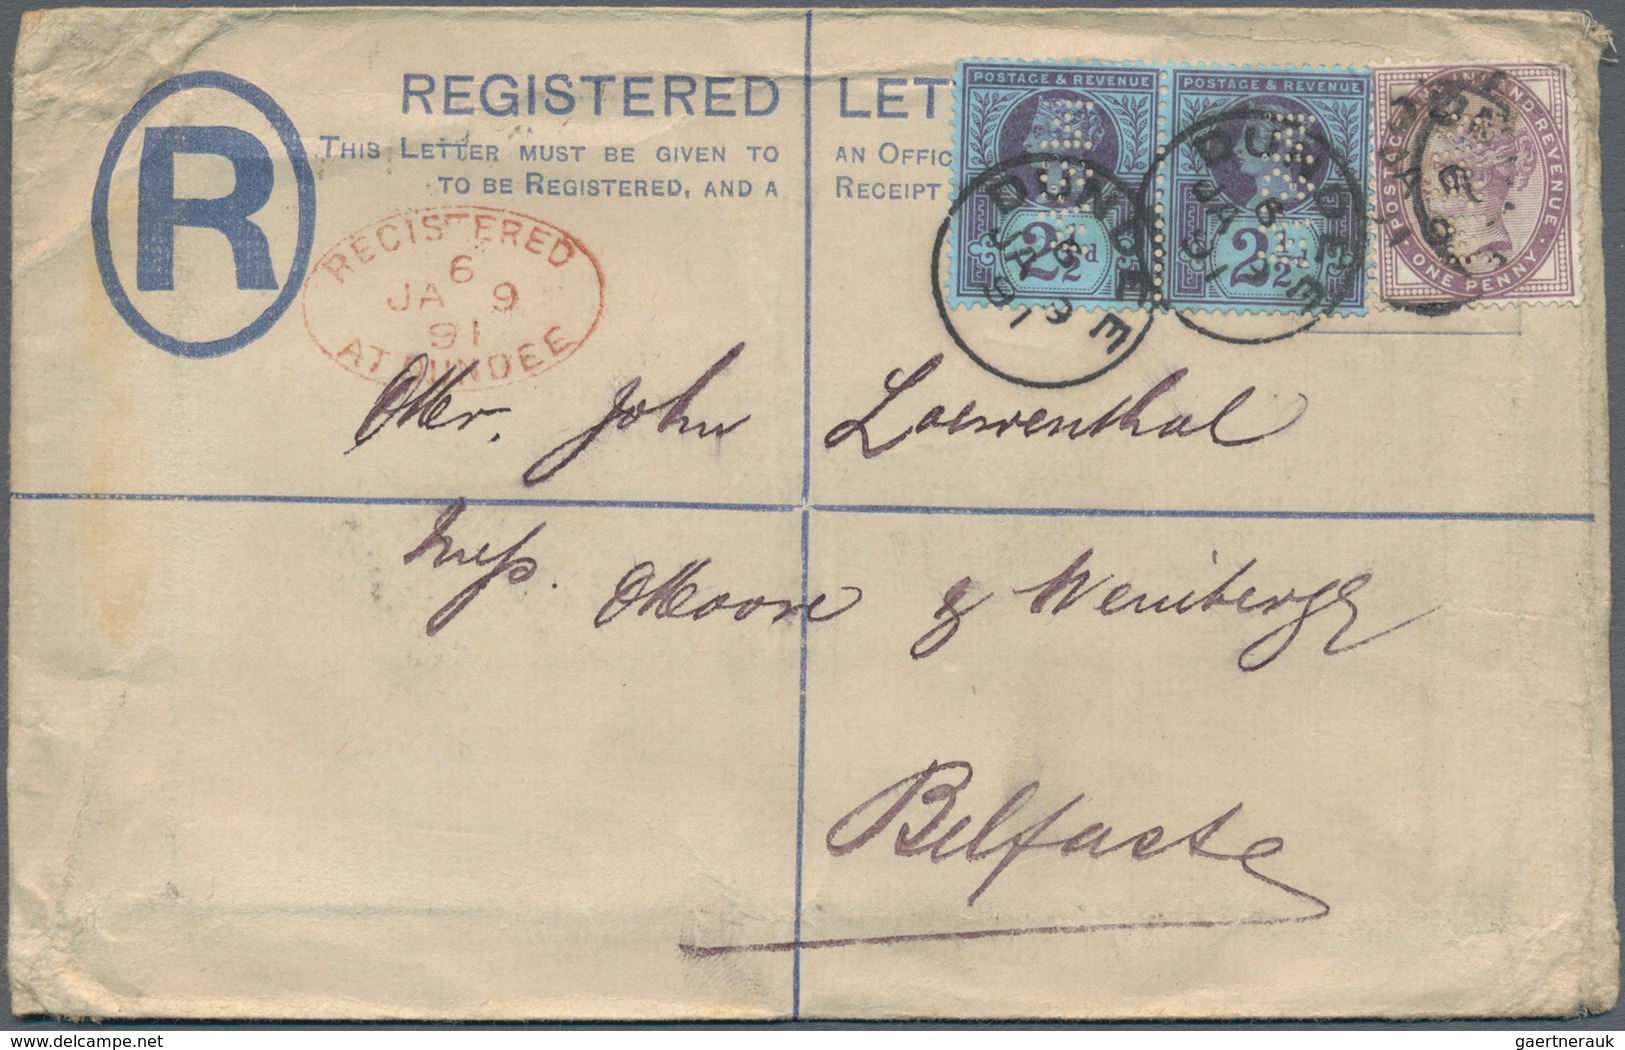 REGISTERED LET
THIS LETTER MUST BE GIVEN TO AN OFFIC
TO BE REGISTERED, AND A RECEIPT
R
POSTAGE & REVENUE
2½d
POSTAGE & REVENUE
2½d
POSTAGE AND INLAND REVENUE
ONE PENNY
DUNDEE
6
JA 9
91
DUNDEE
6
JA 9
91
REGISTERED
6
JA 9
91
AT DUNDEE
Mr. John Loewenthal
Mess. Moore & Weinberg
Belfast
www.delcampe.net
gaertnerauk